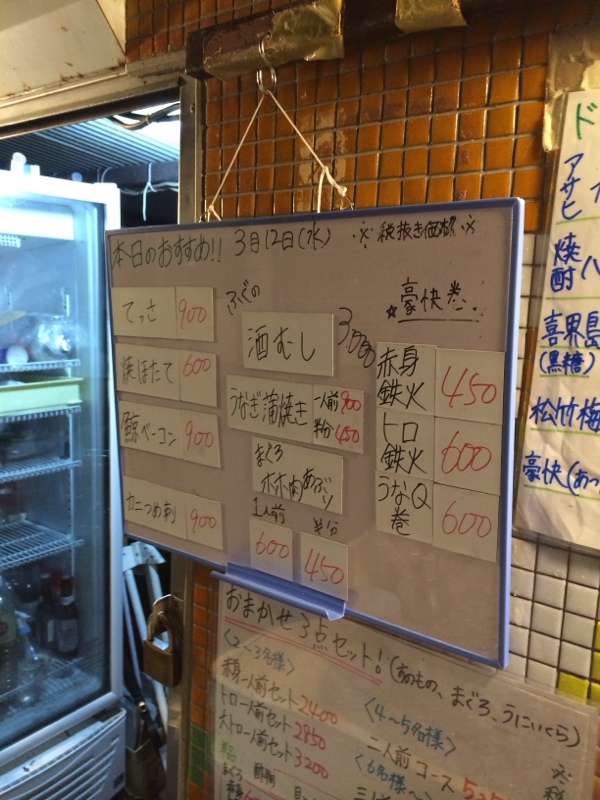 本日のおすすめ!! 3月12日(水) ※ 税抜き価格 ※
てっさ 900
焼ほたて 600
鯨ベーコン 900
カニつめ刺 900
ふぐの
酒むし
うなぎ蒲焼き 一人前 900
半分 450
まぐろ
ホホ肉あぶり
1人前 半分
600 450
☆豪快巻
赤身鉄火 450
トロ鉄火 600
うなQ巻 600
おまかせ3点セット!(貝のもの、まぐろ、うにいくら)
<2~3名様>
赤身一人前セット 2400
トロ一人前セット 2850
大トロ一人前セット 3200
<4~5名様>
二人前コース
<6名様~>
単品
まぐろ
ド
アサヒ
焼酎
喜界島
(黒糖)
松竹梅
豪快